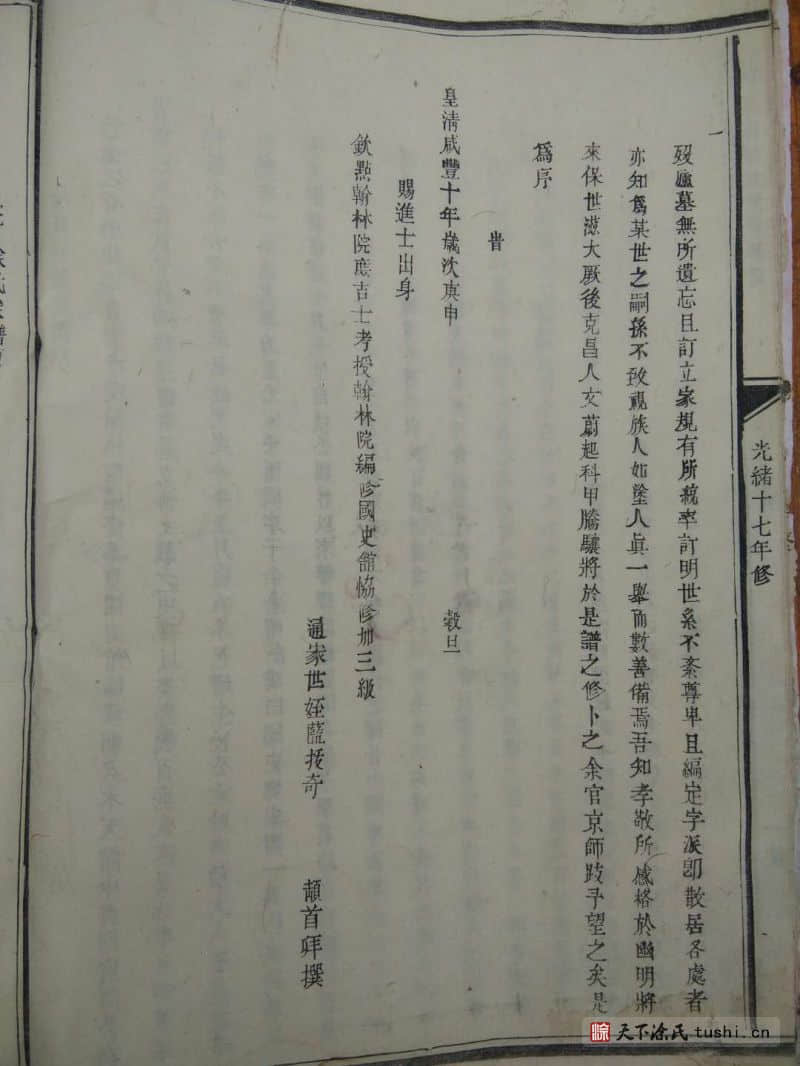 光緒十七年修
歿廬墓無所遺忘且訂立家規有所統率訂明世系不紊尊卑且編定字派卽散居各處者
亦知爲某世之嗣孫不致視族人如塗人眞一舉而數善備焉吾知孝敬所感格於幽明將
來保世滋大厥後克昌人文蔚起科甲騰驤將於是譜之修卜之余官京師跂予望之矣是
爲序
旹
皇清咸豐十年歲次庚申 穀旦
賜進士出身
欽點翰林院庶吉士考授翰林院編修國史館協修加三級
通家世姪 拔奇 頓首拜撰
天下涂氏 tushi.cn